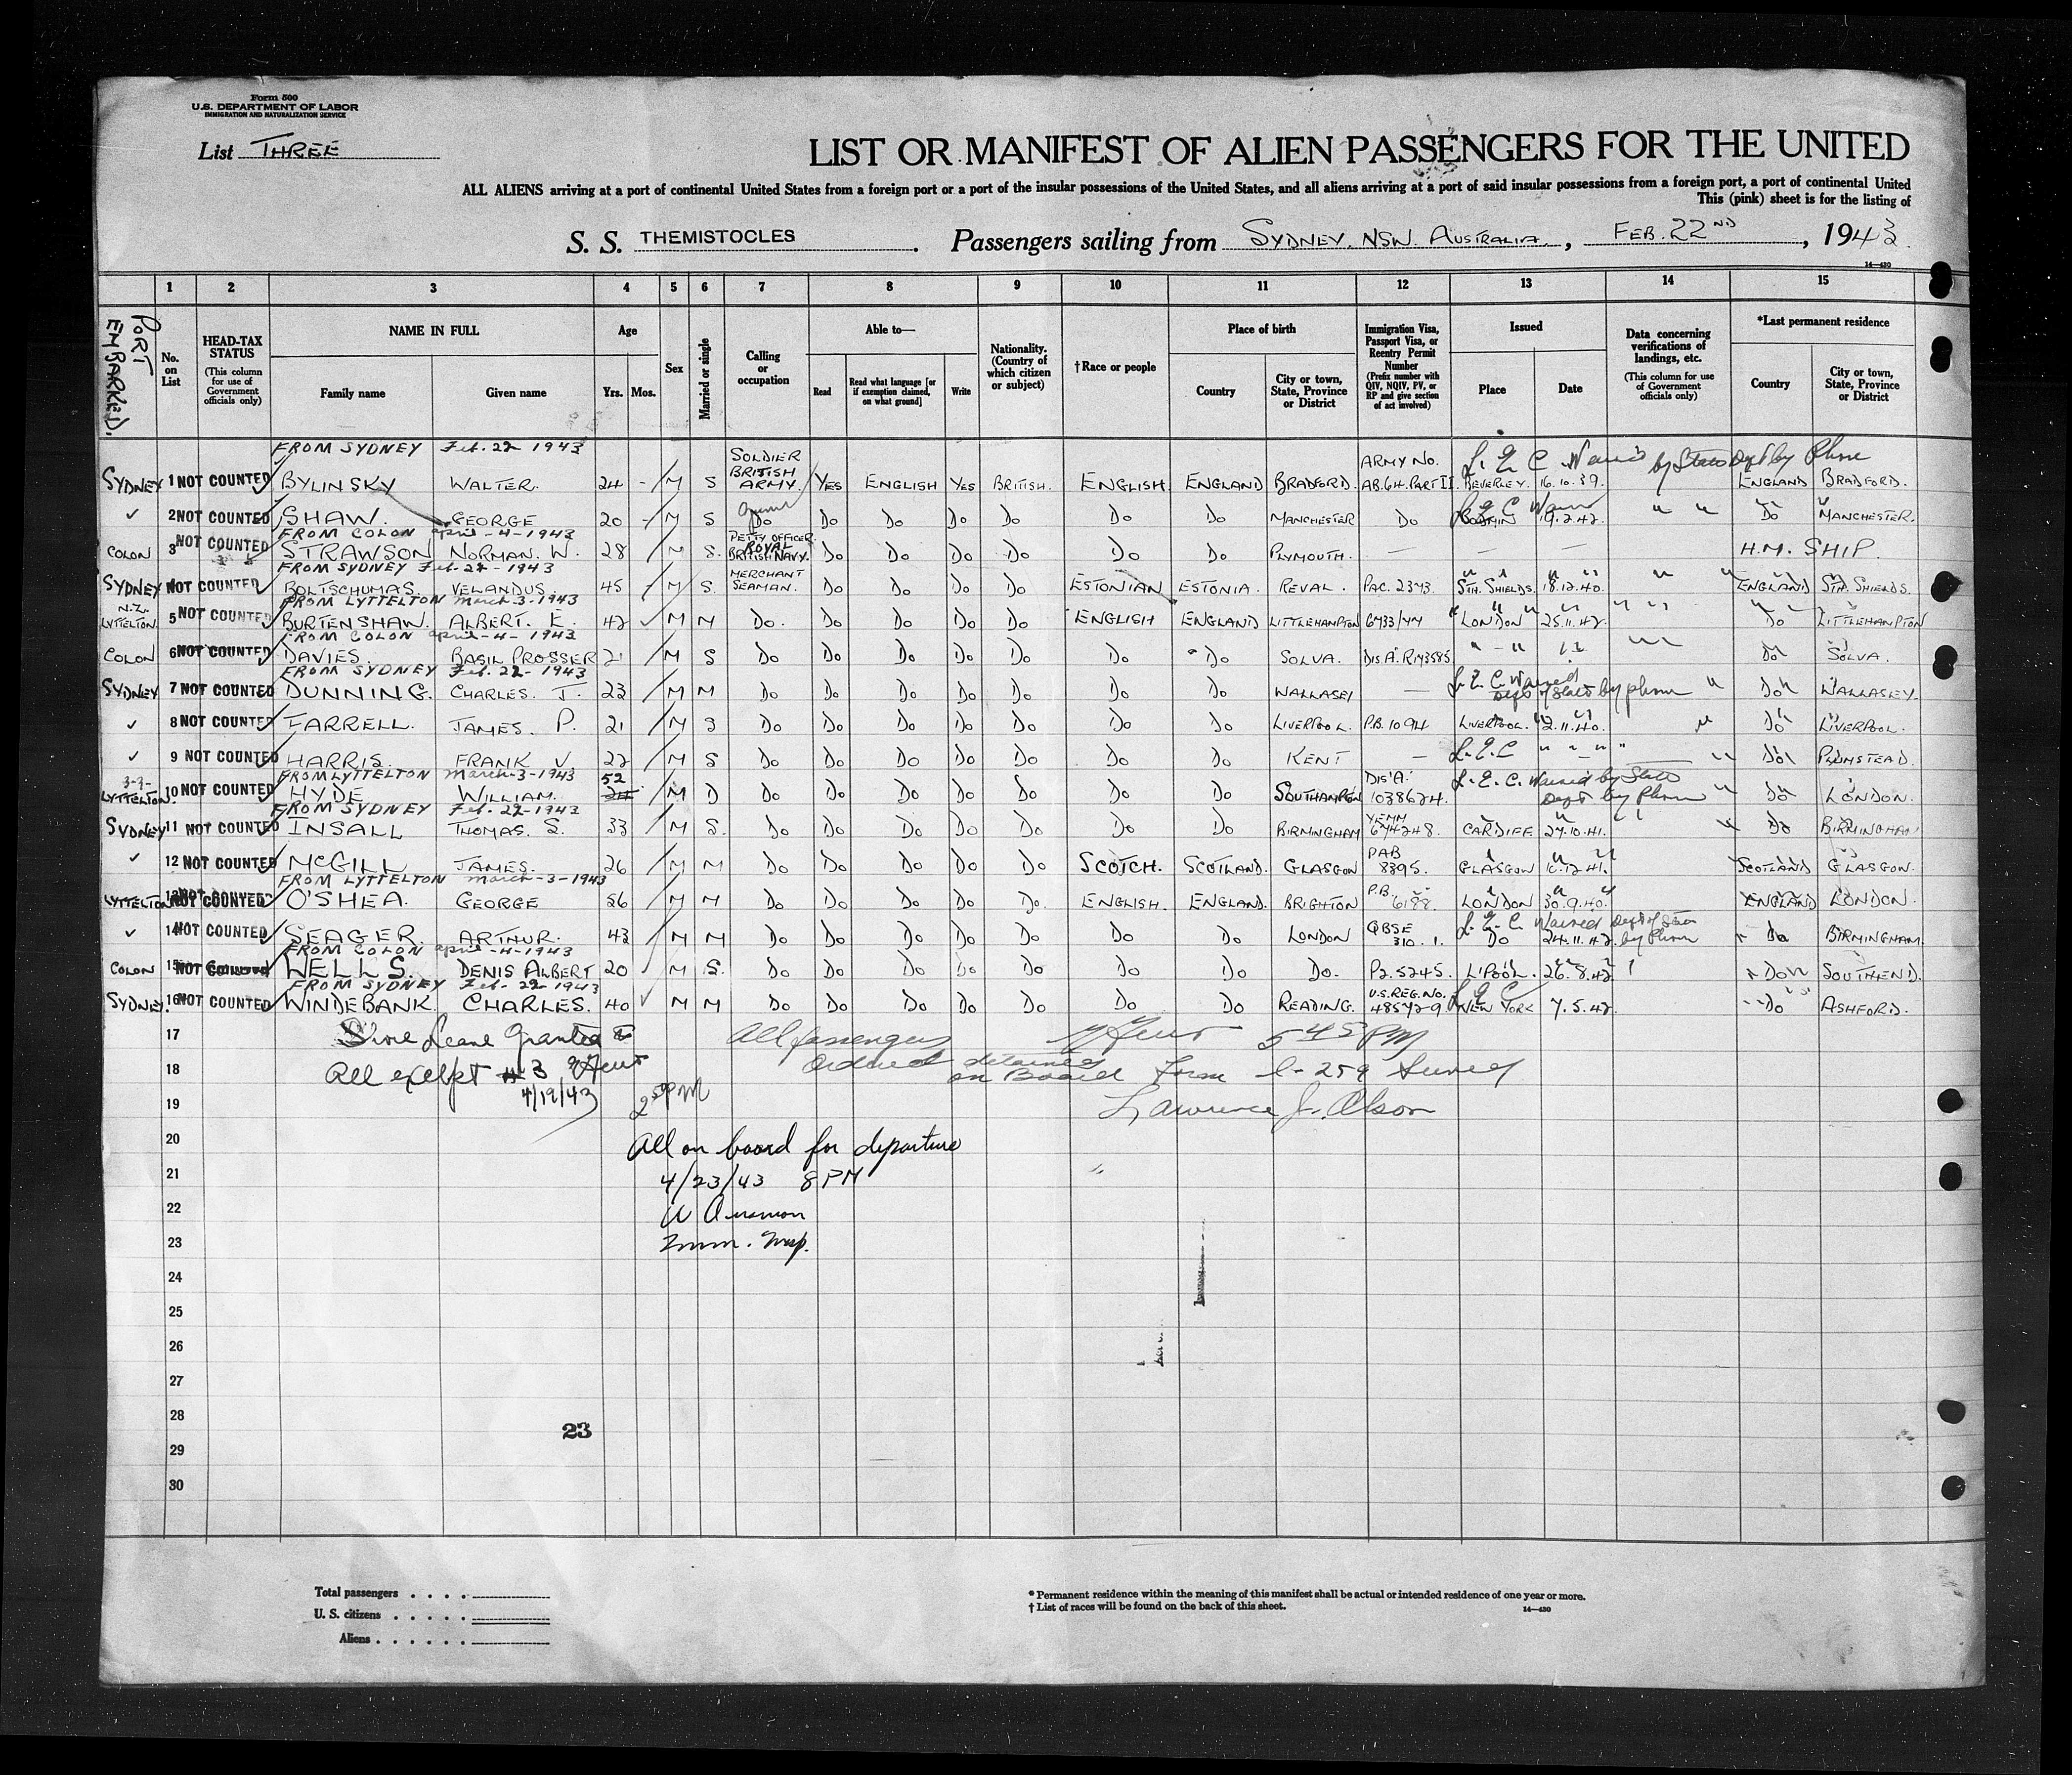 Form 500
U.S. DEPARTMENT OF LABOR
IMMIGRATION AND NATURALIZATION SERVICE
List THREE
LIST OR MANIFEST OF ALIEN PASSENGERS FOR THE UNITED
ALL ALIENS arriving at a port of continental United States from a foreign port or a port of the insular possessions of the United States, and all aliens arriving at a port of said insular possessions from a foreign port, a port of continental United
This (pink) sheet is for the listing of
S. S. THEMISTOCLES . Passengers sailing from SYDNEY, NSW. AUSTRALIA , FEB. 22ND , 1943
14—430
1 2 3 4 5 6 7 8 9 10 11 12 13 14 15
PORT EMBARKED. No. on List HEAD-TAX STATUS (This column for use of Government officials only) NAME IN FULL Family name Given name Age Yrs. Mos. Sex Married or single Calling or occupation Able to— Read Read what language [or if exemption claimed, on what ground] Write Nationality. (Country of which citizen or subject) †Race or people Place of birth Country City or town, State, Province or District Immigration Visa, Passport Visa, or Reentry Permit Number (Prefix number with QIV, NQIV, PV, or RP and give section of act involved) Issued Place Date Data concerning verifications of landings, etc. (This column for use of Government officials only) *Last permanent residence Country City or town, State, Province or District
FROM SYDNEY Feb. 22 1943
SYDNEY 1 NOT COUNTED BYLINSKY WALTER. 24 - M S SOLDIER BRITISH ARMY. YES ENGLISH YES BRITISH. ENGLISH. ENGLAND BRADFORD. ARMY NO. AB.64.PART II. BEVERLEY. 16.10.39. by State Dept by Phone ENGLAND BRADFORD.
✓ 2 NOT COUNTED SHAW. GEORGE 20 - M S Do Do Do Do Do Do Do MANCHESTER Do 19.2.42. " " Do MANCHESTER.
FROM COLON april-4-1943
COLON 3 NOT COUNTED STRAWSON NORMAN. W. 28 M S. PETTY OFFICER. ROYAL BRITISH NAVY. Do Do Do Do Do Do PLYMOUTH. — — — H.M. SHIP.
FROM SYDNEY Feb-22-1943
SYDNEY NOT COUNTED BOLTSCHUMAS. VELANDUS. 45 M S. MERCHANT SEAMAN. Do Do Do Do ESTONIAN ESTONIA. REVAL. PAC. 2373. STH. SHIELDS. 18.12.40. " " ENGLAND STH. SHIELDS.
FROM LYTTELTON March-3-1943
N.Z. LYTTELTON. 5 NOT COUNTED BURTENSHAW. ALBERT. E. 42 M M Do. Do Do Do Do ENGLISH ENGLAND LITTLEHAMPTON 6733/44 LONDON 25.11.42. " " Do LITTLEHAMPTON
FROM COLON april-4-1943
COLON 6 NOT COUNTED DAVIES. BASIL PROSSER 21 M S Do Do Do Do Do Do Do SOLVA. DIS.A. R143585. " - " " Do SOLVA.
FROM SYDNEY Feb. 22-1943
SYDNEY 7 NOT COUNTED DUNNING. CHARLES. J. 23 M M Do Do Do Do Do Do Do WALLASEY — Waived Dept of State by phone " Do WALLASEY.
✓ 8 NOT COUNTED FARRELL. JAMES. P. 21 M S Do Do Do Do Do Do Do LIVERPOOL. P.B.1094 LIVERPOOL. 2.11.40. " Do LIVERPOOL.
✓ 9 NOT COUNTED HARRIS. FRANK V. 22 M S Do Do Do Do Do Do Do KENT — " " " " Do PLUMSTEAD.
FROM LYTTELTON March-3-1943
3-3- LYTTELTON. 10 NOT COUNTED HYDE WILLIAM. 52 24 M D Do Do Do Do Do Do Do SOUTHAMPTON DIS'A' 1038624. Waived by State Dept by Phone " Do LONDON.
FROM SYDNEY Feb. 22-1943
SYDNEY 11 NOT COUNTED INSALL THOMAS. S. 33 M S. Do Do Do Do Do Do Do BIRMINGHAM 674248. CARDIFF 27.10.41. " Do BIRMINGHAM
✓ 12 NOT COUNTED McGILL JAMES. 26 M M Do Do Do Do Do SCOTCH. SCOTLAND. GLASGOW PAB 8395. GLASGOW 10.12.41. SCOTLAND GLASGOW.
FROM LYTTELTON March-3-1943
LYTTELTON 13 NOT COUNTED O'SHEA. GEORGE 56 M M Do Do Do Do Do. ENGLISH. ENGLAND. BRIGHTON P.B. 6188. LONDON 30.9.40. ENGLAND LONDON.
✓ 14 NOT COUNTED SEAGER. ARTHUR. 43 M M Do Do Do Do Do Do Do LONDON QBSE 310.1. Waived Dept of State by Phone Do 24.11.42. Do BIRMINGHAM.
FROM COLON april-4-1943
COLON 15 NOT COUNTED WELLS. DENIS ALBERT 20 M S. Do Do Do Do Do Do Do Do. P2.5245. L'POOL. 26.8.42 Do SOUTHEND.
FROM SYDNEY Feb-22-1943
SYDNEY. 16 NOT COUNTED WINDEBANK. CHARLES. 40 M M Do Do Do Do Do Do Do READING. U.S.REG.NO. 485729 NEW YORK 7.5.42. Do ASHFORD.
17 Shore Leave Granted to All passengers 5 45 PM
18 All except #3 ordered detained on Board Form I-259 Served
19 4/19/43 2 50 PM Lawrence J. Olson
20 All on board for departure
21 4/23/43 8 PM
22
23 Imm. Insp.
24
25
26
27
28
23
29
30
Total passengers . . . .
U. S. citizens . . . . .
Aliens . . . . . .
* Permanent residence within the meaning of this manifest shall be actual or intended residence of one year or more.
† List of races will be found on the back of this sheet.
14—430